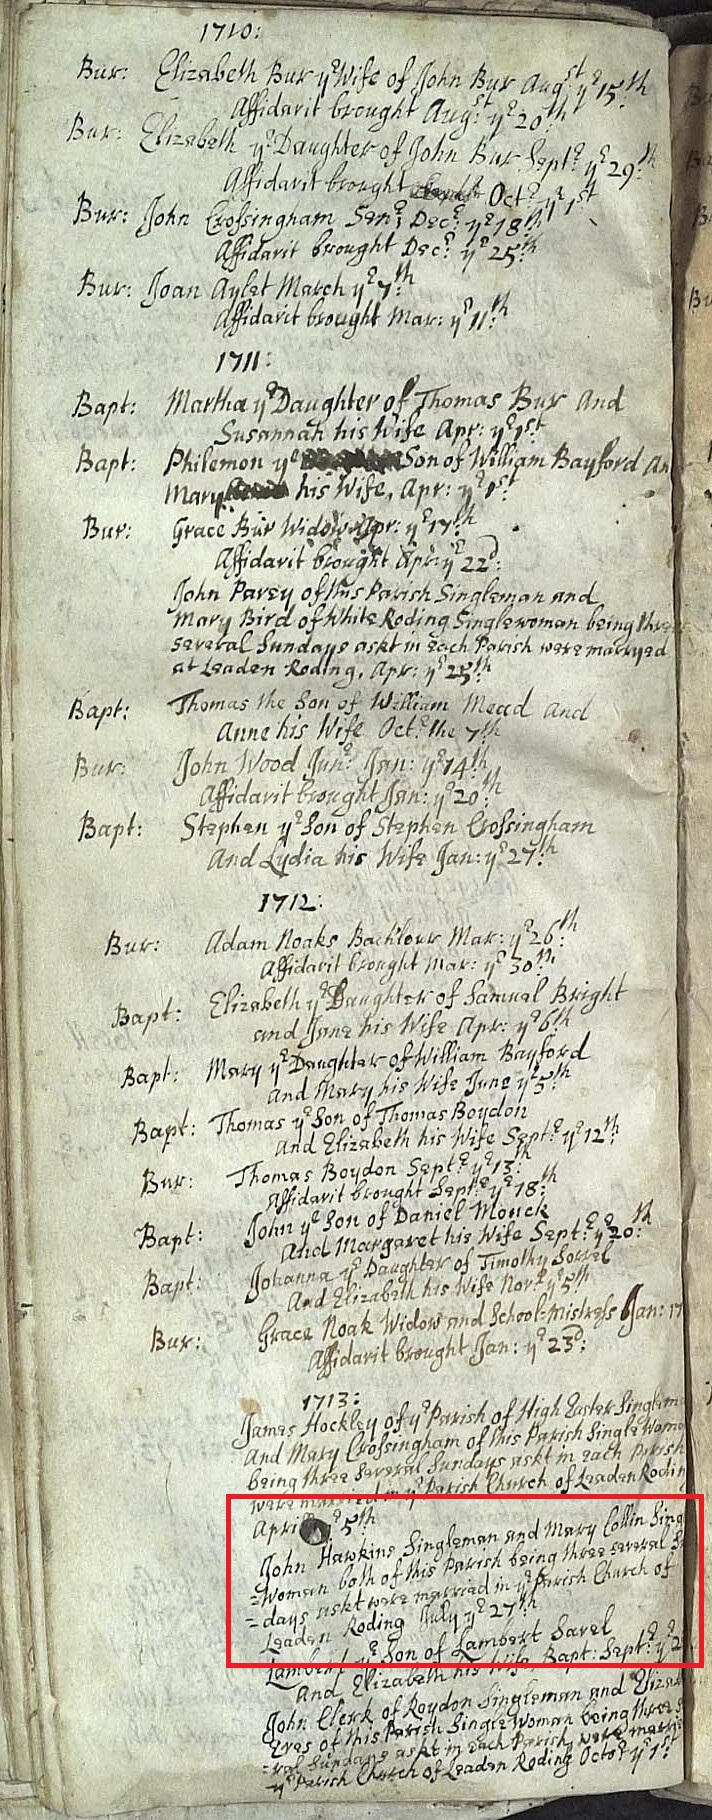 1710:
Bur: Elizabeth Bur yᵉ Wife of John Bur Augˢᵗ: yᵉ 15ᵗʰ
Affidavit brought Augˢᵗ: yᵉ 20ᵗʰ:
Bur: Elizabeth yᵉ Daughter of John Bur Septᵉ: yᵉ 29ᵗʰ:
Affidavit brought Octᵉ: yᵉ 1ˢᵗ
Bur: John Crossingham Senʳ; Decᵉ: yᵉ 18ᵗʰ:
Affidavit brought Decᵉ: yᵉ 25ᵗʰ:
Bur: Joan Aylet March yᵉ 7ᵗʰ:
Affidavit brought Mar: yᵉ 11ᵗʰ:
1711:
Bapt: Martha yᵉ Daughter of Thomas Bur And
Susannah his Wife Apr: yᵉ 1ˢᵗ
Bapt: Philemon yᵉ Son of William Bayford An
Mary his Wife, Apr: yᵉ 1ˢᵗ
Bur: Grace Bur Widow Apr: yᵉ 17ᵗʰ:
Affidavit brought Apr: yᵉ 22ᵈ:
John Pavey of this Parish Singleman and
Mary Bird of White Roding Singlewoman being three
several Sundays askt in each Parish were marryed
at Leaden Roding, Apr: yᵉ 25ᵗʰ
Bapt: Thomas the Son of William Mead And
Anne his Wife Octᵉ: the 7ᵗʰ
Bur: John Wood Junʳ: Jan: yᵉ 14ᵗʰ:
Affidavit brought Jan: yᵉ 20ᵗʰ:
Bapt: Stephen yᵉ Son of Stephen Crossingham
And Lydia his Wife Jan: yᵉ 27ᵗʰ:
1712:
Bur: Adam Noaks Bachlour Mar: yᵉ 26ᵗʰ:
Affidavit brought Mar: yᵉ 30ᵗʰ:
Bapt: Elizabeth yᵉ Daughter of Samuel Bright
and Jane his Wife Apr: yᵉ 6ᵗʰ
Bapt: Mary yᵉ Daughter of William Bayford
And Mary his Wife June yᵉ 5ᵗʰ
Bapt: Thomas yᵉ Son of Thomas Boydon
And Elizabeth his Wife Septᵉ: yᵉ 12ᵗʰ:
Bur: Thomas Boydon Septᵉ: yᵉ 13ᵗʰ:
Affidavit brought Septᵉ: yᵉ 18ᵗʰ:
Bapt: John yᵉ Son of Daniel Mouck
And Margaret his Wife Septᵉ: yᵉ 20ᵗʰ:
Bapt: Johanna yᵉ Daughter of Timothy Sorrel
And Elizabeth his Wife Novᵉ: yᵉ 5ᵗʰ
Bur: Grace Noak Widow and School-Mistress Jan: 17
Affidavit brought Jan: yᵉ 23ᵈ:
1713:
James Hockley of yᵉ Parish of High Easter Singlem
And Mary Crossingham of this Parish Single Woma
being three several Sundays askt in each Parish
were married in yᵉ Parish Church of Leaden Rodin
April yᵉ 5ᵗʰ
John Hawkins Singleman and Mary Collin Sing
=Woman both of this Parish being three several S
=days askt were married in yᵉ Parish Church of
Leaden Roding July yᵉ 27ᵗʰ
Lambert yᵉ Son of Lambert Savel
And Elizabeth his Wife, Bapt: Septᵉ: yᵉ 2
John Clerk of Roydon Singleman and Elizab
Eves of this Parish Single Woman being three s
=ral Sundays askt in each Parish, were marri
yᵉ Parish Church of Leaden Roding Octoᵉ: yᵉ 1ˢᵗ